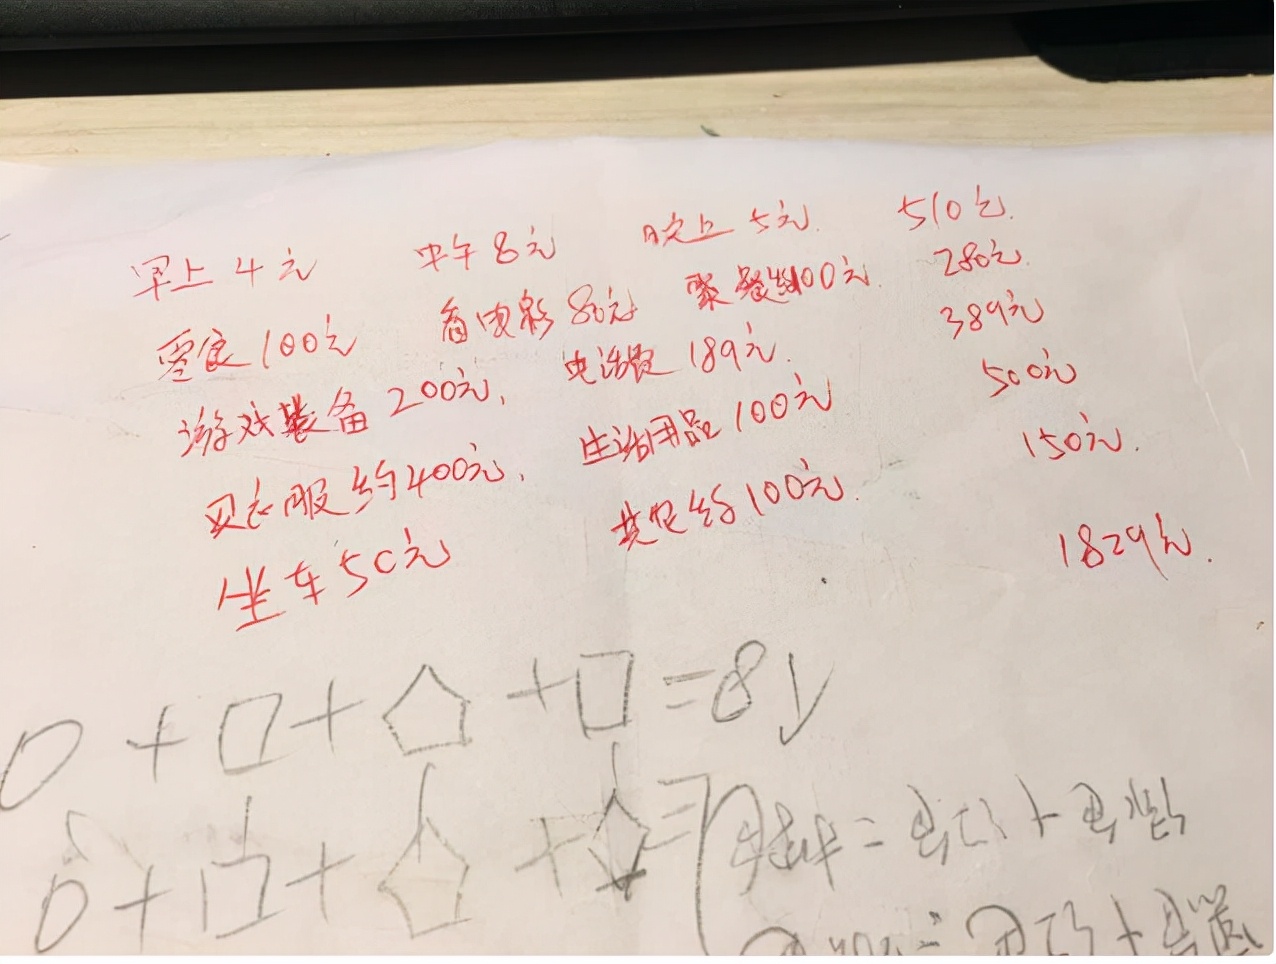 早上4元 中午8元 晚上5元. 510元.
零食100元 看电影80元 聚餐约100元. 280元.
游戏装备200元, 电话费189元. 389元
买衣服约400元, 生活用品100元 500元
坐车50元 其它约100元. 150元.
1829元.
O+□+⬠+□=8y